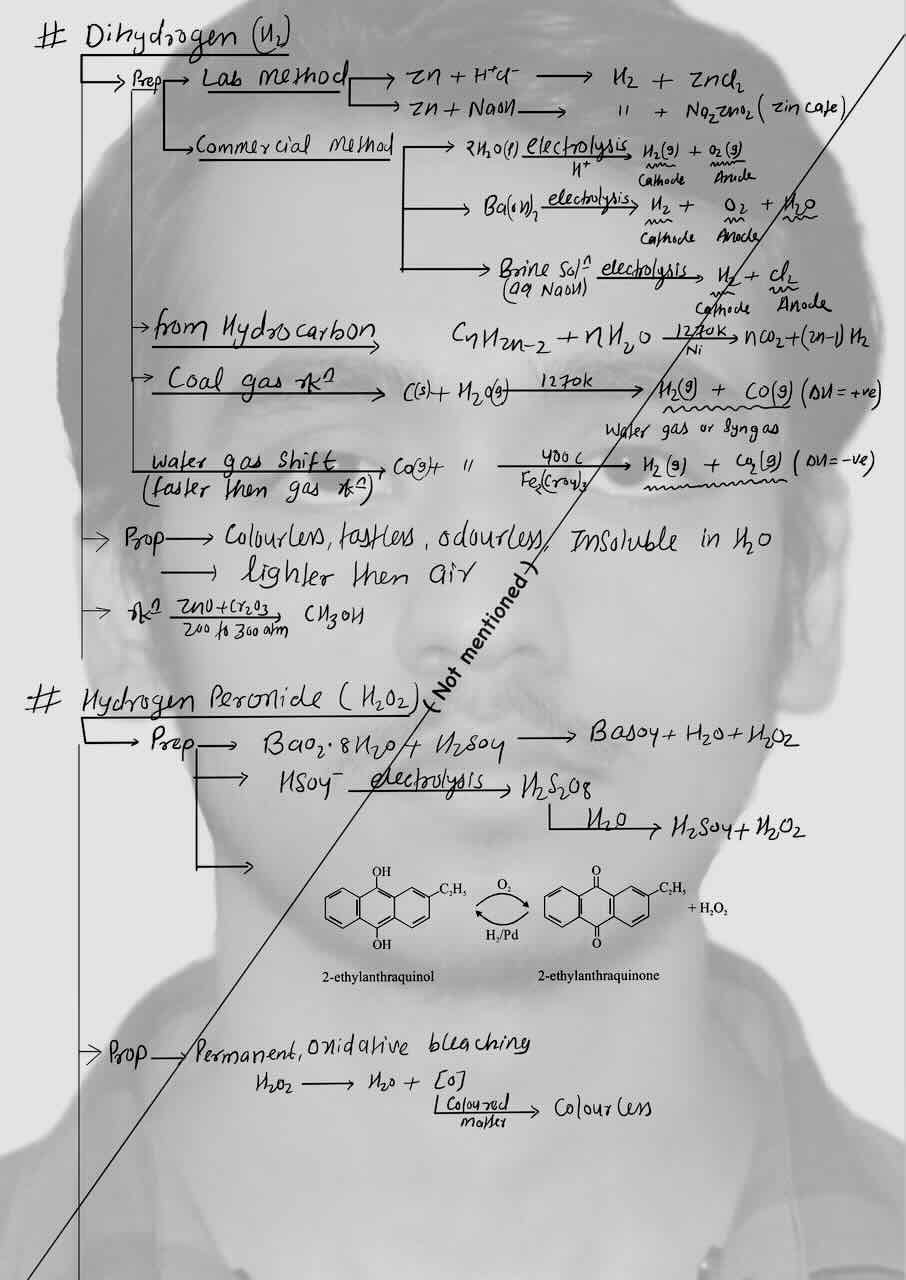 # Dihydrogen (H₂)
Prep → Lab Method → Zn + H⁺Cl⁻ → H₂ + ZnCl₂
→ Zn + NaOH → " + Na₂ZnO₂ (zincate)
→ Commercial Method → 2H₂O(l) electrolysis H⁺ → H₂(g) + O₂(g)
Cathode Anode
→ Ba(OH)₂ electrolysis → H₂ + O₂ + H₂O
Cathode Anode
→ Brine Solⁿ electrolysis → H₂ + Cl₂
(aq NaOH) Cathode Anode
→ from Hydrocarbon → CnH2n-2 + nH₂O 1270K Ni → nCO₂ + (2n-1) H₂
→ Coal gas rxⁿ → C(s) + H₂O(g) 1270k → H₂(g) + CO(g) (ΔH = +ve)
Water gas or Syngas
water gas shift → CO(g) + " 400 C Fe₂(CrO4)₃ → H₂(g) + CO₂(g) (ΔH = -ve)
(faster then gas rxⁿ)
→ Prop → Colourless, tastless, odourless, Insoluble in H₂O
→ lighter then air
→ rxⁿ ZnO + Cr₂O₃ 200 to 300 atm → CH₃OH
(Not mentioned)
# Hydrogen Peroxide (H₂O₂)
→ Prep → BaO₂·8H₂O + H₂SO4 → BaSO4 + H₂O + H₂O₂
→ HSO4⁻ electrolysis → H₂S₂O8
H₂O → H₂SO4 + H₂O₂
→
OH O
C₂H₅ O₂ C₂H₅
H₂/Pd + H₂O₂
OH O
2-ethylanthraquinol 2-ethylanthraquinone
→ Prop → Permanent, Oxidative bleaching
H₂O₂ → H₂O + [O]
Coloured matter → Colourless